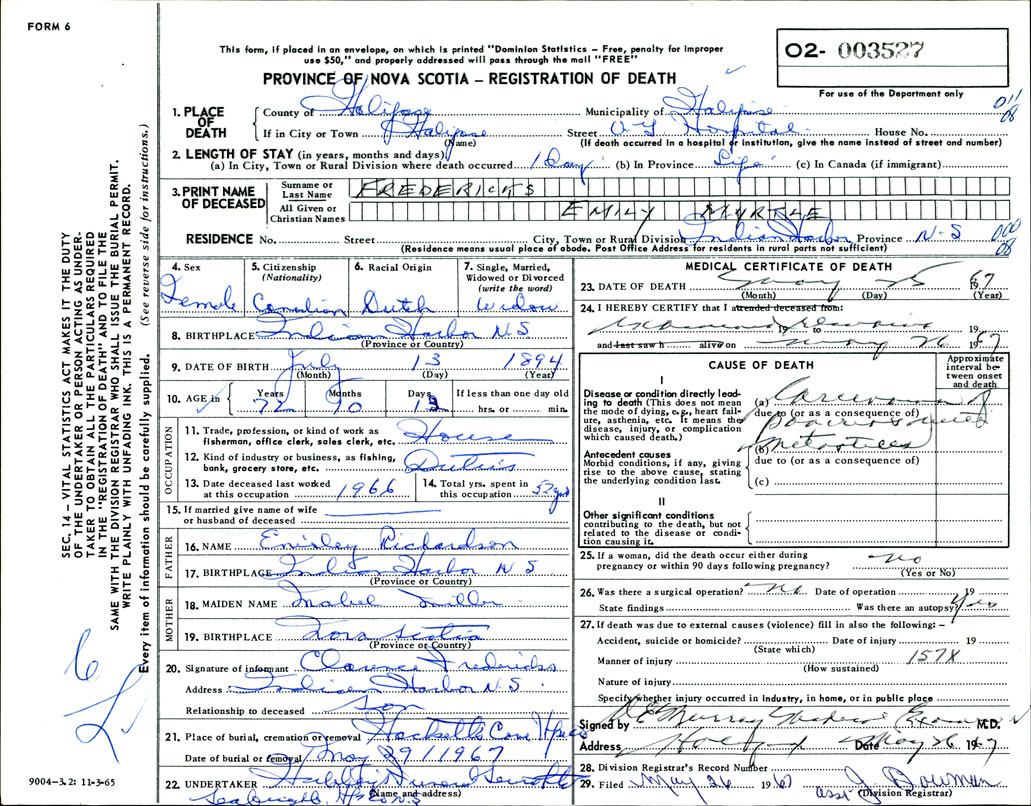 FORM 6
This form, if placed in an envelope, on which is printed "Dominion Statistics – Free, penalty for improper
use $50," and properly addressed will pass through the mail "FREE"
O2- 003527
For use of the Department only
PROVINCE OF NOVA SCOTIA – REGISTRATION OF DEATH
011
08
1. PLACE OF DEATH
County of Halifax Municipality of Halifax
If in City or Town Halifax Street V G Hospital House No.
(Name) (If death occurred in a hospital or institution, give the name instead of street and number)
2. LENGTH OF STAY (in years, months and days)
(a) In City, Town or Rural Division where death occurred 1 Day (b) In Province Life (c) In Canada (if immigrant)
3. PRINT NAME OF DECEASED
Surname or Last Name FREDERICKS
All Given or Christian Names EMILY MYRTLE
RESIDENCE No. Street City, Town or Rural Division Indian Harbor Province N-S
000
08
(Residence means usual place of abode. Post Office Address for residents in rural parts not sufficient)
4. Sex Female
5. Citizenship (Nationality) Canadian
6. Racial Origin Dutch
7. Single, Married, Widowed or Divorced (write the word) Widow
8. BIRTHPLACE Indian Harbor N.S
(Province or Country)
9. DATE OF BIRTH July 13 1894
(Month) (Day) (Year)
10. AGE in Years 72 Months 10 Days 13 If less than one day old hrs. or min.
OCCUPATION
11. Trade, profession, or kind of work as fisherman, office clerk, sales clerk, etc. House
12. Kind of industry or business, as fishing, bank, grocery store, etc. Duties
13. Date deceased last worked at this occupation 1966
14. Total yrs. spent in this occupation 52 yrs
15. If married give name of wife or husband of deceased
FATHER
16. NAME Richardson
17. BIRTHPLACE Indian Harbor N S
(Province or Country)
MOTHER
18. MAIDEN NAME Mabel Miller
19. BIRTHPLACE Nova Scotia
(Province or Country)
20. Signature of informant Clarence Fredericks
Address Indian Harbor N.S.
Relationship to deceased Son
21. Place of burial, cremation or removal Hacketts Cove Hfx Co
Date of burial or removal May 29/1967
22. UNDERTAKER
(Name and address)
Seabright Hfx Co N.S
MEDICAL CERTIFICATE OF DEATH
23. DATE OF DEATH May 25 1967
(Month) (Day) (Year)
24. I HEREBY CERTIFY that I attended deceased from:
19 to 19
and last saw h alive on May 26 1967
CAUSE OF DEATH
Approximate interval between onset and death
I
Disease or condition directly leading to death (This does not mean the mode of dying, e.g., heart failure, asthenia, etc. It means the disease, injury, or complication which caused death.)
(a) Carcinoma of
due to (or as a consequence of)
pancreas
(b) Metastases
due to (or as a consequence of)
(c)
Antecedent causes
Morbid conditions, if any, giving rise to the above cause, stating the underlying condition last.
II
Other significant conditions
contributing to the death, but not related to the disease or condition causing it.
25. If a woman, did the death occur either during pregnancy or within 90 days following pregnancy? No
(Yes or No)
26. Was there a surgical operation? No Date of operation 19
State findings Was there an autopsy? Yes
27. If death was due to external causes (violence) fill in also the following: –
Accident, suicide or homicide? Date of injury 19
(State which)
157X
Manner of injury
(How sustained)
Nature of injury
Specify whether injury occurred in industry, in home, or in public place
Signed by Murray Medical Examiner M.D.
Address Halifax Date May 26 1967
28. Division Registrar's Record Number
29. Filed May 26 1967 J. Bowman
asst (Division Registrar)
SEC. 14 – VITAL STATISTICS ACT MAKES IT THE DUTY
OF THE UNDERTAKER OR PERSON ACTING AS UNDER-
TAKER TO OBTAIN ALL THE PARTICULARS REQUIRED
IN THE "REGISTRATION OF DEATH" AND TO FILE THE
SAME WITH THE DIVISION REGISTRAR WHO SHALL ISSUE THE BURIAL PERMIT.
WRITE PLAINLY WITH UNFADING INK. THIS IS A PERMANENT RECORD.
Every item of information should be carefully supplied. (See reverse side for instructions.)
6
9004-3.2: 11-3-65